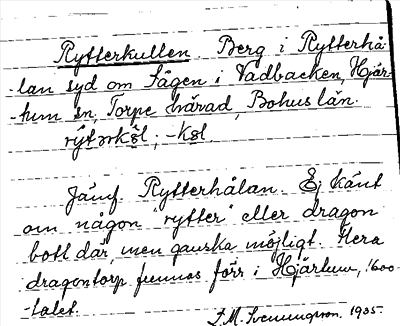 Rytterkullen. Berg i Rytterhå-
lan syd om Sågen i Vadbacken, Hjär-
tum sn, Torpe härad, Bohus län.
rýtərkʊ̀l; -kʊl.
Jämf. Rytterhålan. Ej känt
om någon "rytter" eller dragon
bott där, men ganska möjligt. Flera
dragontorp funnos förr i Hjärtum, 1600-
talet.
S.M. Svenungson. 1935.